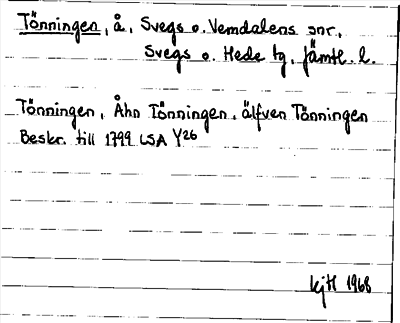 Tönningen, å, Svegs o. Vemdalens snr,
Svegs o. Hede tg, Jämtl. l.
Tönningen, Åhn Tönningen, älfven Tönningen
Beskr. till 1799 LSA Y26
kjtl 1968